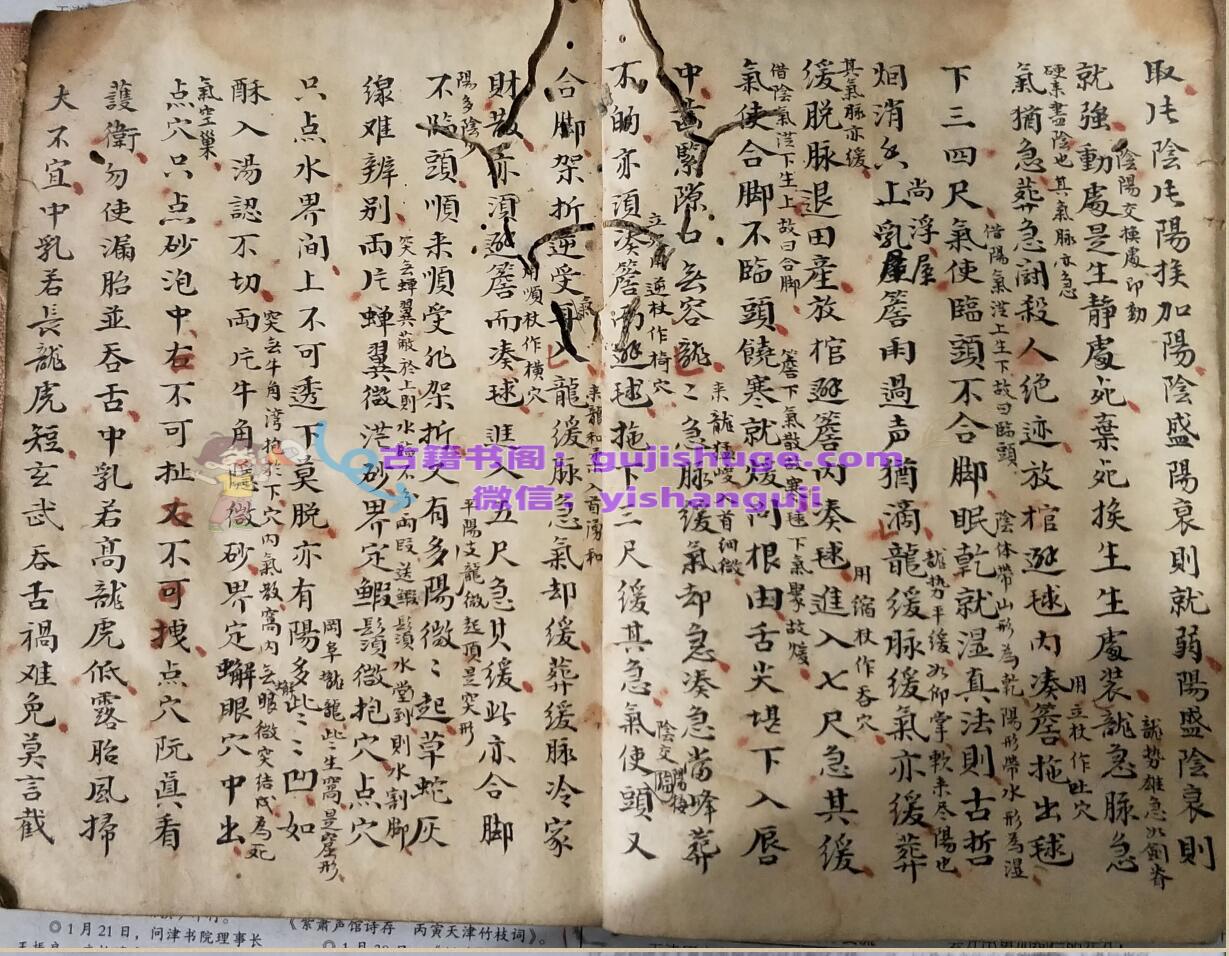 取片陰片陽挨加陽陰盛陽衰則就弱陽盛陰衰則
就強動處是生静處死棄死挨生生處装龍急脉急
陰陽交換處即動
龍势雄急如劍脊
硬來盡陰也其氣脉亦急
氣犹急葬急闘殺人絶迹放棺避毬内凑簷拖出毬
用立杖作吐穴
借陽氣從上生下故曰臨頭
下三四尺氣使臨頭不合脚眠乾就湿真法則古哲
陰体帶山形為乾陽形帶水形為湿
上乳簷雨過声犹滴龍缓脉缓氣亦缓葬
尚浮屋
龍势平缓如仰掌軟来尽陽也
其氣脉亦缓
缓脱脉退田產放棺避簷内凑毬進入七尺急其缓
用缩杖作吞穴
借陰氣從下生上故曰合脚
氣使合脚不臨頭饒寒就煖问根由舌尖堪下入唇
簷下氣散故寒毬下氣聚故煖
中齒緊隙口无容龍龍急脉缓氣却急凑急當峰葬
来龍
入首细微
不的亦須凑簷而避毬拖下三尺缓其急氣使頭又
立
逆杖作倚穴
陰交陽
合脚架折逆受龍缓脉急氣却缓葬缓脉冷家
来龍和
入首湧和
財散亦須避簷而凑毬進入五尺急其缓此亦合脚
用順杖作横穴
陽多陰少
不臨頭順来順受非架折又有多陽微微起草蛇灰
平陽支龍微起頂是突形
線难辨别两片蝉翼微從砂界定蝦鬚微抱穴点穴
突无蝉翼蔽於上則水
两段送蝦鬚水堂到則水割脚
只点水界间上不可透下莫脱亦有陽多些些凹如
岡阜壠龍些些生窩是窟形
酥入湯認不切两片牛角隱微砂界定蠏眼穴中出
突无牛角湾抱於下穴内氣散窩内无眼微突结成為死
氣空巢
点穴只点砂泡中右不可扯又不可拽点穴阮真看
護衛勿使漏胎並吞舌中乳若高龍虎低露胎風掃
大不宜中乳若長龍虎短玄武吞舌禍难免莫言截
古籍书阁：gujishuge.com
微信：yishanguji
◎1月21日，问津书院理事长
《紫萧声馆诗存　丙寅天津竹枝词》。